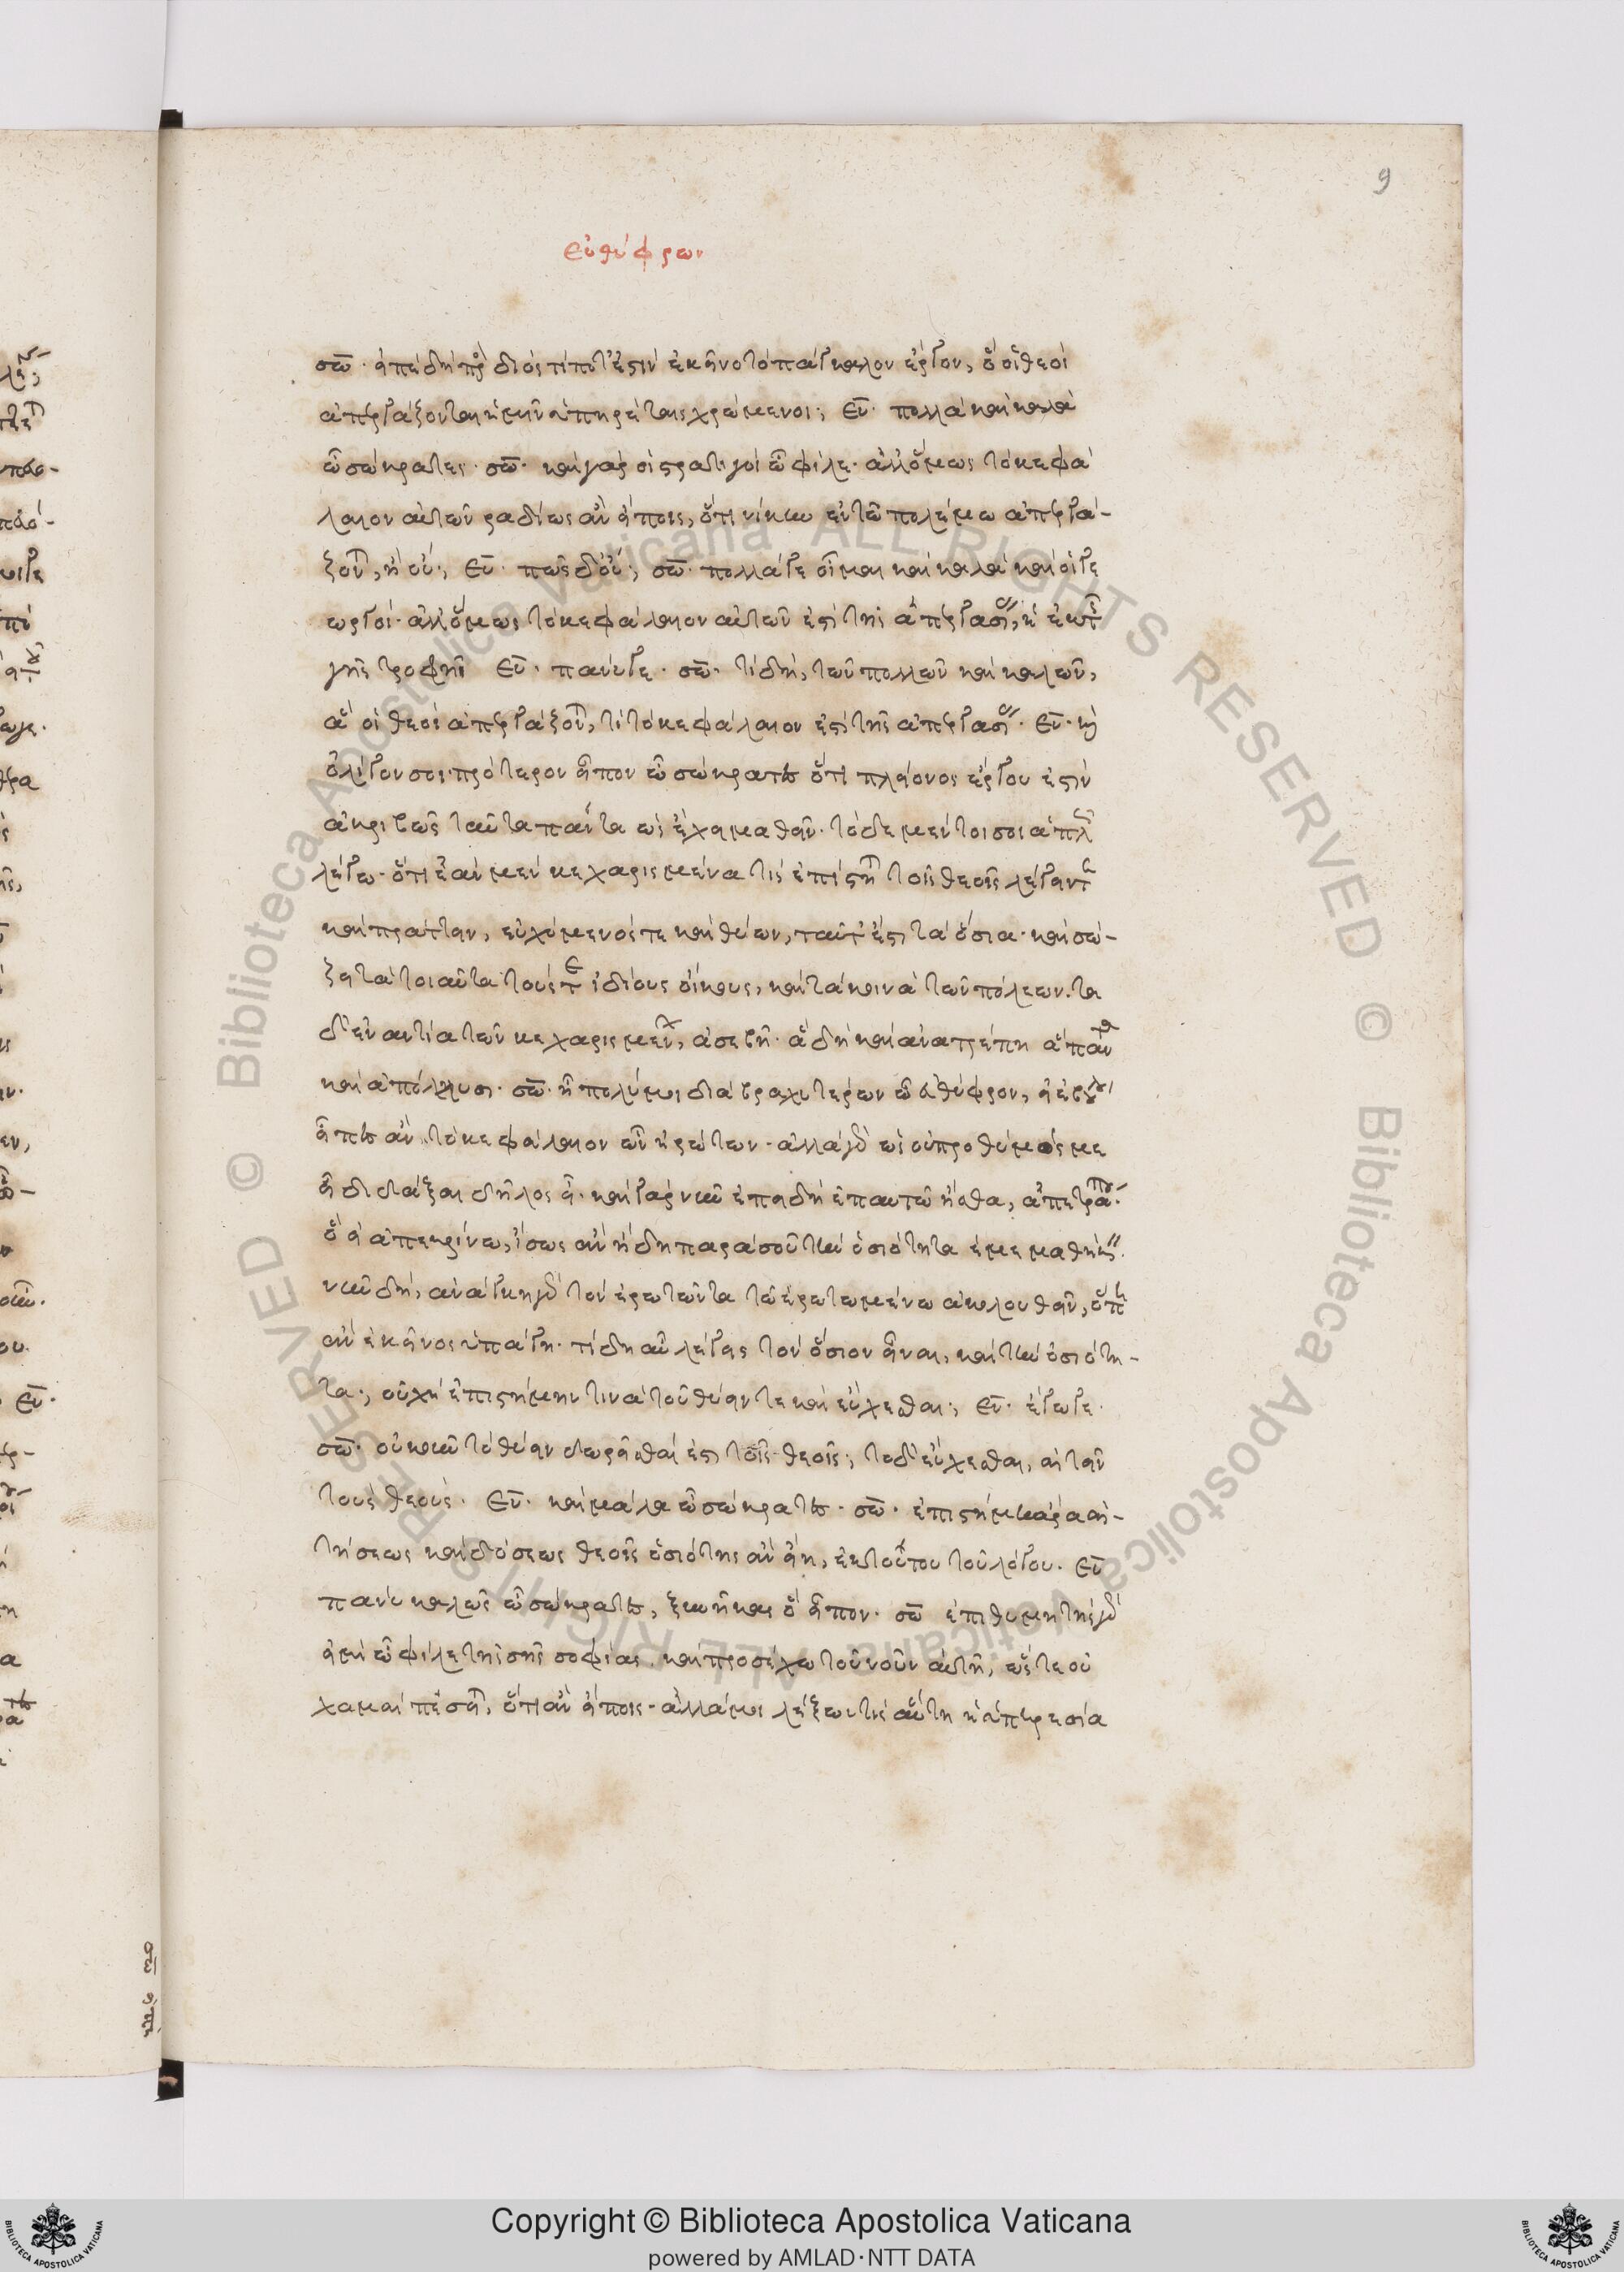 9
εὐθύφρων
σω̅· εἰπὲ δὴ πρὸς διὸς τί ποτ' ἐστὶν ἐκεῖνο τὸ πάγκαλον ἔργον, ὃ οἱ θεοὶ
ἀπεργάζονται ἡμῖν ὑπηρέταις χρώμενοι; εὐ̅· πολλὰ καὶ καλὰ
ὦ σώκρατες· σω̅· καὶ γὰρ οἱ στρατηγοὶ ὦ φίλε· ἀλλ' ὅμως τὸ κεφά-
λαιον αὐτῶν ῥαδίως ἂν εἴποις, ὅτι νίκην ἐν τῶ πολέμω ἀπεργά-
ζονται, ἢ οὔ; εὐ̅· πῶς δ' οὔ; σω̅· πολλὰ γε οἶμαι καὶ καλὰ καὶ οἵ γε
ωργοί· ἀλλ' ὅμως τὸ κεφάλαιον αὐτῶν ἐστὶ τῆς ἀπεργασίας, ἡ ἐκ τῆς
γῆς τροφή εὐ̅· πάνυ γε· σω̅· τί δὴ, τῶν πολλῶν καὶ καλῶν,
ἃ οἱ θεοὶ ἀπεργάζονται, τί τὸ κεφάλαιον ἐστὶ τῆς ἀπεργασίας· εὐ̅· καὶ
ὀλίγον σοι πρότερον εἶπον ὦ σώκρατες ὅτι πλείονος ἔργου ἐστὶν
ἀκριβῶς ταῦτα πάντα ὡς ἔχει μαθεῖν· τόδε μέντοι σοι ἁπλῶς
λέγω· ὅτι ἐὰν μὲν κεχαρισμένα τίς ἐπίστηται τοῖς θεοῖς λέγειν τε
καὶ πράττειν, εὐχόμενός τε καὶ θύων, ταῦτ' ἔστι τὰ ὅσια· καὶ σώ-
ζει τὰ τοιαῦτα τούς τε ἰδίους οἴκους, καὶ τὰ κοινὰ τῶν πόλεων. τὰ
δ' ἐναντία τῶν κεχαρισμένων, ἀσεβῆ· ἃ δὴ καὶ ἀνατρέπει ἅπαντα
καὶ ἀπόλλυσι· σω̅· ἦ πολύ μοι διὰ βραχυτέρων ὦ εὐθύφρον, εἰ ἐβούλου
εἶπες ἂν τὸ κεφάλαιον ὧν ἠρώτων· ἀλλὰ γὰρ ὡς οὐ πρόθυμός με
εἶ διδάξαι δῆλος εἶ· καὶ γὰρ νῦν ἐπειδὴ ἐπ' αὐτῶ ἦσθα, ἀπετράπου·
ὃ εἰ ἀπεκρίνω, ἴσως ἂν ἤδη παρὰ σοῦ τὴν ὁσιότητα ἐμεμαθήκειν.
νῦν δὴ, ἀνάγκη γὰρ τὸν ἐρωτῶντα τῶ ἐρωτωμένω ἀκολουθεῖν, ὅπη
ἂν ἐκεῖνος ὑπάγη· τί δὴ αὖ λέγεις τὸν ὅσιον εἶναι, καὶ τὴν ὁσιότη-
τα; οὐχὶ ἐπιστήμην τινὰ τοῦ θύειν τε καὶ εὔχεσθαι; εὐ̅· ἔγωγε·
σω̅· οὐκοῦν τὸ θύειν δωρεῖσθαί ἐστι τοῖς θεοῖς; τὸ δ' εὔχεσθαι, αἰτεῖν
τοὺς θεούς· εὐ̅· καὶ μάλα ὦ σώκρατες· σω̅· ἐπιστήμη ἄρα αἰ-
τήσεως καὶ δόσεως θεοῖς ὁσιότης ἂν εἴη, ἐκ τούτου τοῦ λόγου· εὐ̅
πάνυ καλῶς ὦ σώκρατες, ξυνῆκας ὃ εἶπον· σω̅ ἐπιθυμητὴς γὰρ
εἰμὶ ὦ φίλε τῆς σῆς σοφίας· καὶ προσέχω τοῦ νοῦν αὐτῆ, ὥστε οὐ
χαμαὶ πεσεῖται, ὅτι ἂν εἴποις· ἀλλά μοι λέξον τίς αὕτη ἡ ὑπηρεσία
Copyright © Biblioteca Apostolica Vaticana
powered by AMLAD·NTT DATA
© Biblioteca Apostolica Vaticana ALL RIGHTS RESERVED © Biblioteca Apostolica Vaticana ALL RIGHTS RESERVED